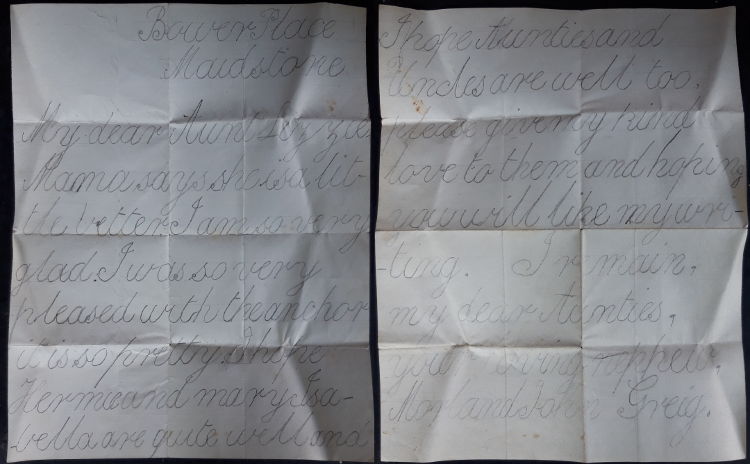 Bower Place
Maidstone
My dear Aunt Lizzie
Mama says she is a lit-
tle better I am so very
glad. I was so very
pleased with the anchor
it is so pretty. I hope
Hermie and mary Isa-
bella are quite well and
I hope Aunties and
Uncles are well too.
please give my kind
love to them and hoping
you will like my wri-
-ting. I remain,
my dear Aunties,
your loving nephew,
Morland John Greig.